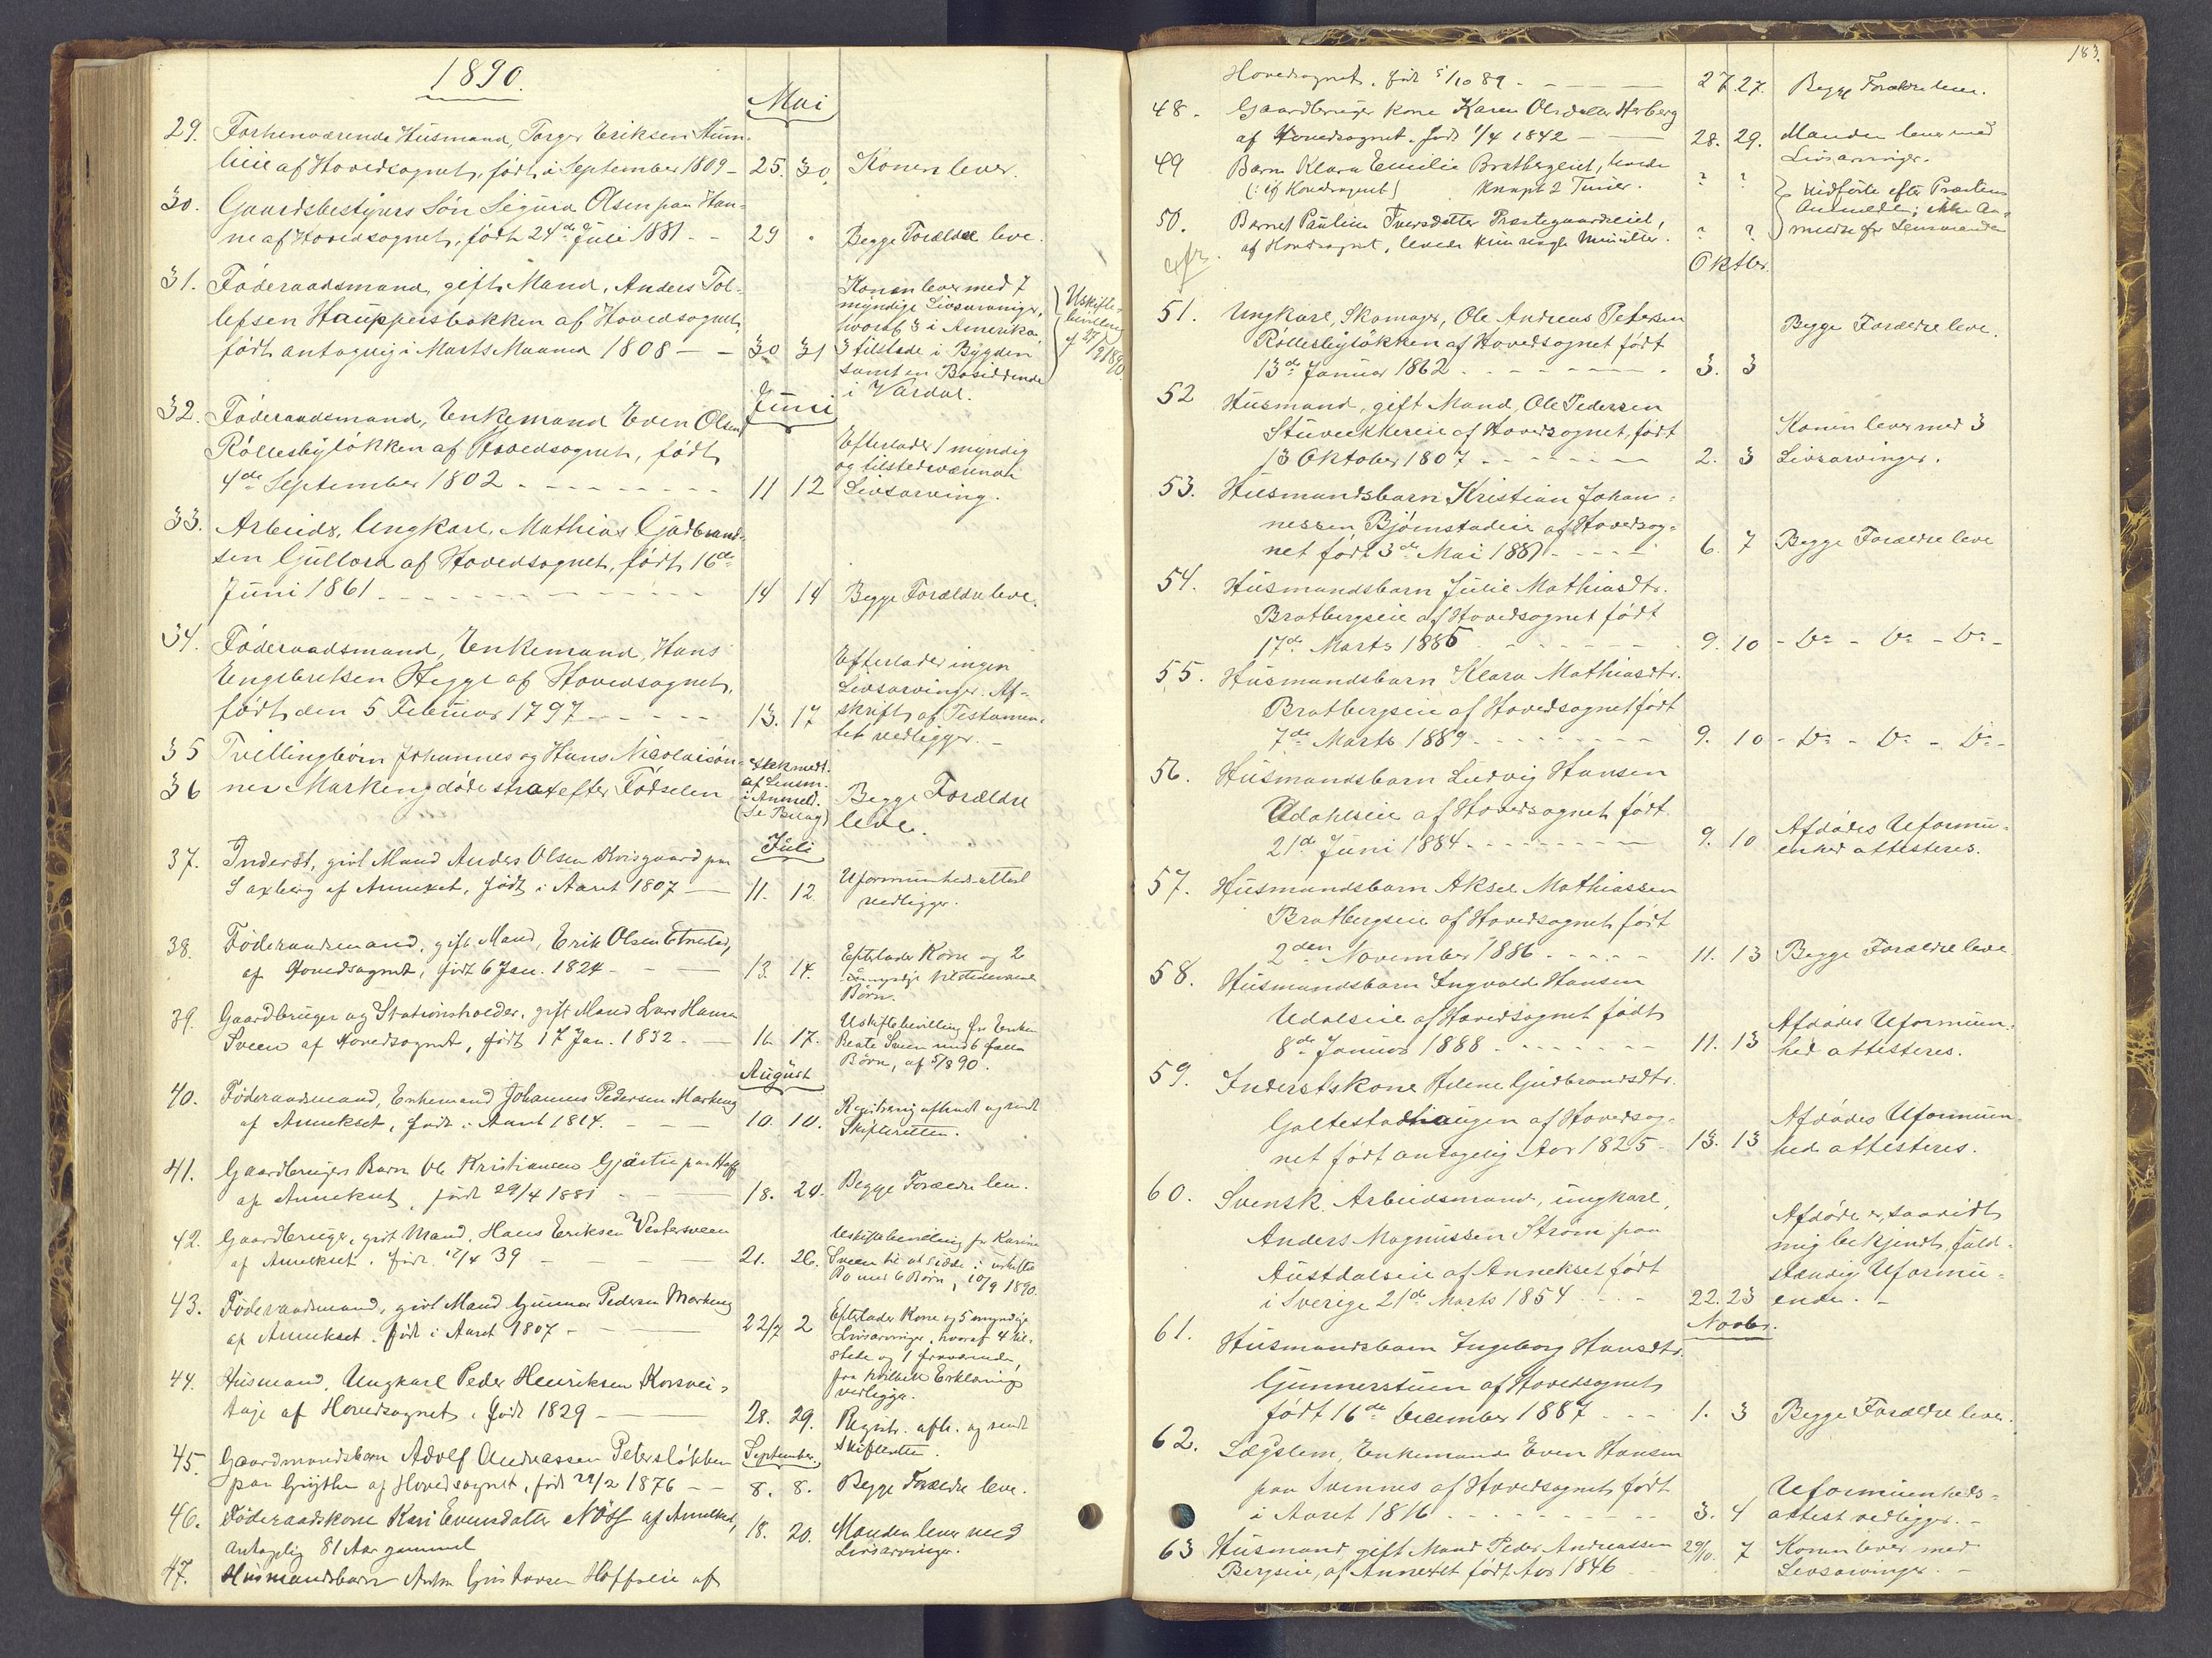 1890.
Mai
29. Forhenværende Husmand, Torger Eriksen Hum-
lieie af Hovedsognet, født i September 1809 - 25. 30. Konen lever.
30. Gaardsbestyrers Søn Sigurd Olsen paa Han-
ne af Hovedsognet, født 24de Juli 1881 - - 29 " Begge Forældre leve.
31. Føderaadsmand, gift Mand, Anders Tol-
lefsen Hauppersbakken af Hovedsognet,
født antagelig i Marts Maaned 1808 - - 30 31
Konen lever med 7
myndige Livsarvinger,
hvoraf 3 i Amerika,
3 tilstede i Bygden
samt en Bosiddende
i Vardal.
Uskifte-
bevilling
af 27/9 1890.
Juni
32. Føderaadsmand, Enkemand Even Olsen
Røllesbyløkken af Hovedsognet, født
4de September 1802 - - - 11 12
Efterlader 1 myndig
og tilstedeværende
Livsarving.
33. Arbeids. Ungkarl, Mathias Gudbrand-
sen Gullord af Hovedsognet, født 16de
Juni 1861 - - - 14 14 Begge Forældre leve.
34. Føderaadsmand, Enkemand, Hans
Engebretsen Hegge af Hovedsognet,
født den 5 Februar 1797 - - - 13. 17
Efterlader ingen
Livsarvinger. Af-
skrift af Testamen-
tet vedligger. -
35 Tvillingbørn Johannes og Hans Nicolaisøn-
36 ner Markeng døde strax efter Fødselen
af Lensm.
i Anmeld.
(Se Bilag)
Begge Forældre
leve.
Juli
37. Inderst, givt Mand Anders Olsen Kvisgaard paa
Saxberg af Annexet, født i Aaret 1807 - 11. 12.
Uformuenheds-attest
vedligger.
38. Føderaadsmand, gift Mand, Erik Olsen Etnestad,
af Hovedsognet, født 6 Jan. 1824 - - - 13. 14.
Efterlader Kone og 2
myndige tilstedeværende
Børn.
39. Gaardbruger og Stationsholder, gift Mand Lars Hansen
Sveen af Hovedsognet, født 17 Jan. 1832 - - 16. 17.
Uskiftebevilling for Enken
Beate Sveen med 6 fælles
Børn, af 5/8 90.
August
40. Føderaadsmand, Enkemand Johannes Pedersen Markeng
af Annekset, født i Aaret 1814. - - - 10. 10.
Registrering afholdt og sendt
Skifteretten.
41. Gaardbrugers Barn Ole Kristiansen Gjørlie paa Hoff
af Annekset, født 29/4 1881 - - 18. 20. Begge Forældre leve.
42. Gaardbruger, givt Mand, Hans Eriksen Vestersveen
af Annekset. født 12/4 39 - - - 21. 26.
Uskiftebevilling for Karine
Sveen til at sidde i uskiftet
Bo med 6 Børn, 10/9 1890.
43. Føderaadsmand, givt Mand Gunnar Pedersen Markeng
af Annekset. født i Aaret 1807 - - - 22/7 2
Efterlader Kone og 5 myndige
Livsarvinger, hvoraf 4 til-
stede og 1 fraværende,
fra hvilken Erklæring
vedligger.
44. Husmand, Ungkarl Peder Henriksen Korsvei-
haje af Hovedsognet, født 1829 - - 28. 29.
Registr. afh. og sendt
Skifteretten.
September.
45. Gaardmandsbarn Adolf Andreassen Petersløkken
paa Grythe af Hovedsognet, født 29/2 1876 - - 8. 8. Begge Forældre leve.
46. Føderaadskone Kari Evensdatter Nøss af Annekset,
antagelig 81 Aar gammel 18. 20.
Manden lever med
Livsarvinger.
47. Husmandsbarn Anton Gustavsen Hoffseie af
183.
Hovedsognet. født 5/10 89 - - - 27. 27. Begge Forældre leve.
48. Gaardbruger kone Karen Olsdatter Herberg
af Hovedsognet. født 1/4 1842 - - 28. 29.
Manden lever med
Livsarvinger.
49 Barn Klara Emilie Bratbergeiet, levede
(: af Hovedsognet) knapt 2 Timer. ? ?
50. Barnet Pauline Iversdatter Præstegaardseiet,
af Hovedsognet, levede kun nogle Minutter. ? ?
indførte efter Præstens
Anmeldelse; ikke an-
meldte for Lensmanden
cfr.
Oktbr.
51. Ungkarl, Skomager, Ole Andreas Petersen
Røllesbyløkken af Hovedsognet født
13de Januar 1862 - - - 3. 3
Begge Forældre leve.
52 Husmand, gift Mand, Ole Pedersen
Stuveekkereie af Hovedsognet, født
13 Oktober 1807 - - - 2. 3
Konen lever med 3
Livsarvinger.
53. Husmandsbarn Kristian Johan-
nessen Bjørnstadeie af Hovedsog-
net født 3de Mai 1881 - - - 6. 7 Begge Forældre leve
54. Husmandsbarn Julie Mathiasdtr.
Bratbergseie af Hovedsognet født
17de Marts 1885 - - - 9. 10 - Do - Do - Do -
55. Husmandsbarn Klara Mathiasdtr.
Bratbergseie af Hovedsognet født
7de Marts 1889 - - - 9. 10 - Do - Do - Do -
56. Husmandsbarn Ludvig Hansen
Udahlseie af Hovedsognet født
21de Juni 1884 - - - 9. 10
Afdødes Uformu-
enhed attesteres.
57. Husmandsbarn Aksel Mathiassen
Bratbergseie af Hovedsognet født
2den November 1886 - - - 11. 13 Begge Forældre leve
58. Husmandsbarn Ingvald Hansen
Udalseie af Hovedsognet født
8de Januar 1888 - - - 11. 13
Afdødes Uformuen-
hed attesteres.
59. Inderstskone Helene Gudbrandsdtr.
Galtestadhaugen af Hovedsog-
net født antagelig Aar 1825 - 13. 13
Afdødes Uformuen-
hed attesteres.
60. Svensk Arbeidsmand, ungkarl,
Anders Magnussen Strøm paa
Austdalseie af Annekset født
i Sverige 21de Marts 1854 - - - 22. 23
Afdøde er, saavidt
mig bekjendt, fuld-
stændig Uformu-
ende. -
Novbr.
61. Husmandsbarn Ingeborg Hansdtr.
Gunnerstuen af Hovedsognet
født 16de December 1887 - - - 1. 3 Begge Forældre lever.
62. Lægslem, Enkemand Even Hansen
paa Svennes af Hovedsognet født
i Aaret 1816 - - - 3. 4
Uformuenheds-
attest vedligger. -
63 Husmand gift Mand Peder Andreassen 29/10. 7 Konen lever med
Bergseie, af Annexet født Aar 1846 - Livsarvinger. -